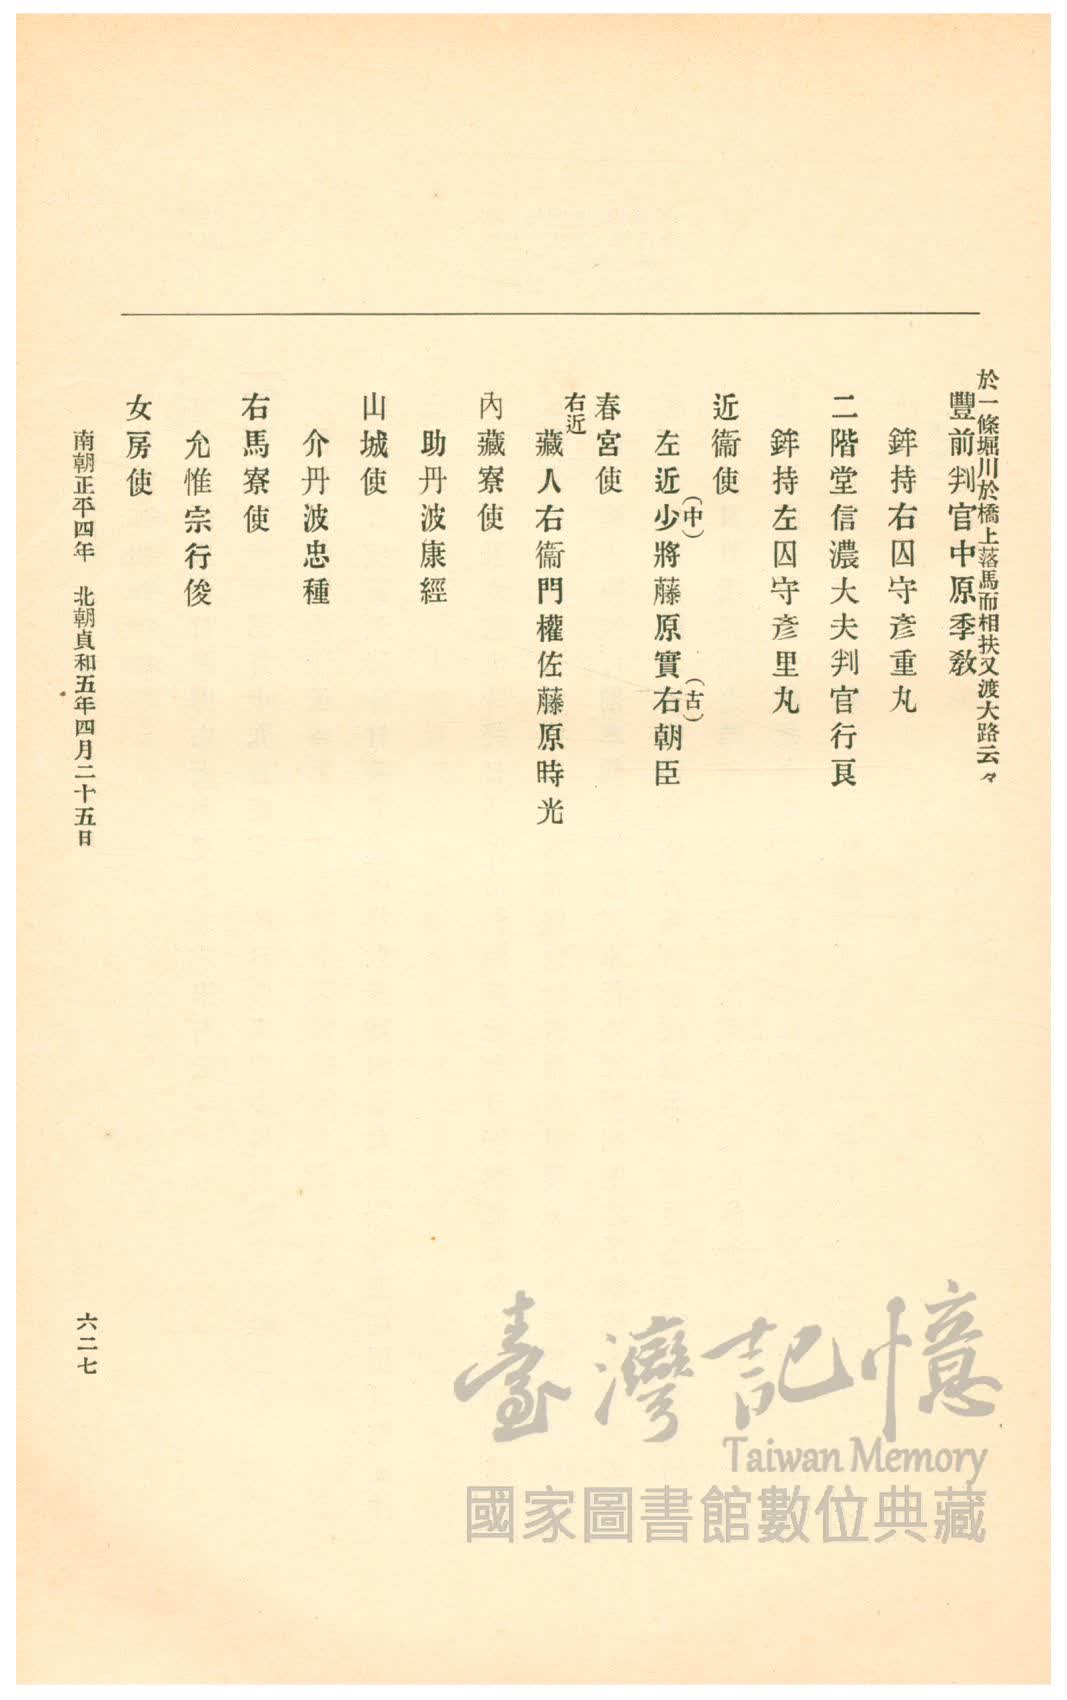 於一條堀川於橋上落馬而相扶又渡大路云々
豐前判官中原季敎
鉾持右囚守彥重丸
二階堂信濃大夫判官行良
鉾持左囚守彥里丸
近衞使
左近少(中)將藤原實右(古)朝臣
春宮使
右近
藏人右衞門權佐藤原時光
內藏寮使
助丹波康經
山城使
介丹波忠種
右馬寮使
允惟宗行俊
女房使
南朝正平四年 北朝貞和五年四月二十五日
六二七
臺灣記憶
Taiwan Memory
國家圖書館數位典藏